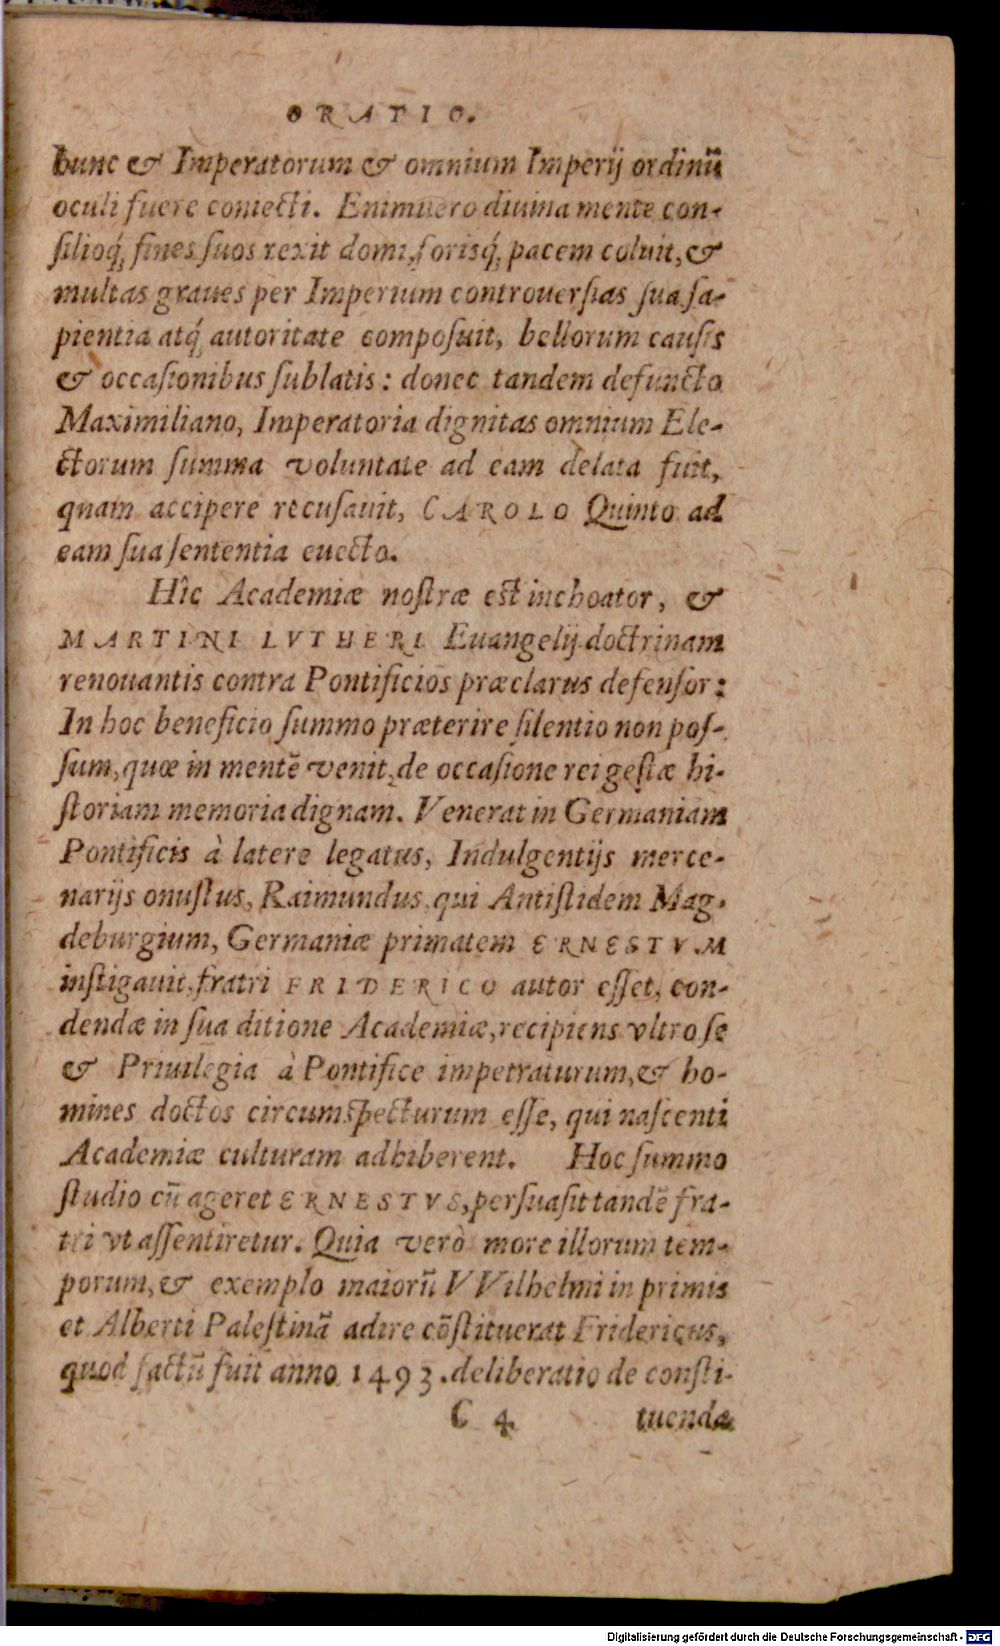 ORATIO.
hunc & Imperatorum & omnium Imperij ordinũ
oculi fuere coniecti. Enimuero diuina mente con-
ſilioq́; fines ſuos rexit domi, forisq́; pacem coluit, &
multas graues per Imperium controuerſias ſua ſa-
pientia atq́; autoritate compoſuit, bellorum cauſis
& occaſionibus ſublatis: donec tandem defuncto
Maximiliano, Imperatoria dignitas omnium Ele-
ctorum ſumma voluntate ad eam delata fuit,
quam accipere recuſauit, CAROLO Quinto ad
eam ſua ſententia euecto.
Hîc Academiæ noſtræ eſt inchoator, &
MARTINI LVTHERI Euangelij doctrinam
renouantis contra Pontificios præclarus defenſor:
In hoc beneficio ſummo præterire ſilentio non poſ-
ſum, quæ in mentẽ venit, de occaſione rei geſtæ hi-
ſtoriam memoria dignam. Venerat in Germaniam
Pontificis à latere legatus, Indulgentijs merce-
narijs onuſtus, Raimundus, qui Antiſtidem Mag-
deburgium, Germaniæ primatem ERNESTVM
inſtigauit, fratri FRIDERICO autor eſſet, con-
dendæ in ſua ditione Academiæ, recipiens vltro ſe
& Priuilegia à Pontifice impetraturum, & ho-
mines doctos circumſpecturum eſſe, qui naſcenti
Academiæ culturam adhiberent. Hoc ſummo
ſtudio cũ ageret ERNESTVS, perſuaſit tandẽ fra-
tri vt aſſentiretur. Quia verò more illorum tem-
porum, & exemplo maiorũ VVilhelmi in primis
et Alberti Paleſtinã adire cõſtituerat Fridericus,
quod factũ fuit anno 1493. deliberatio de conſti-
C 4 tuenda
Digitalisierung gefördert durch die Deutsche Forschungsgemeinschaft - DFG